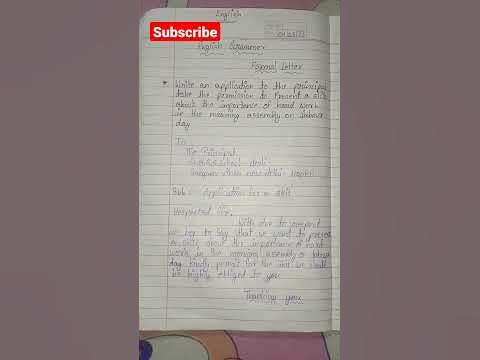 English
Subscribe
English Grammer
Formal Letter
Write an application to the principal
take the permission to Present a skit
about the importance of hard work
in the morning assembly on labour
day
To
The Principal
school delhi
new delhi
Sub :- Application for a skit
Respected sir,
With due to respect
we beg to say that we want to present
a skit about the importance of hard
work in the morning assembly on labour
day kindly permit for the skit we shall
be highly obliged to you
Thanking you